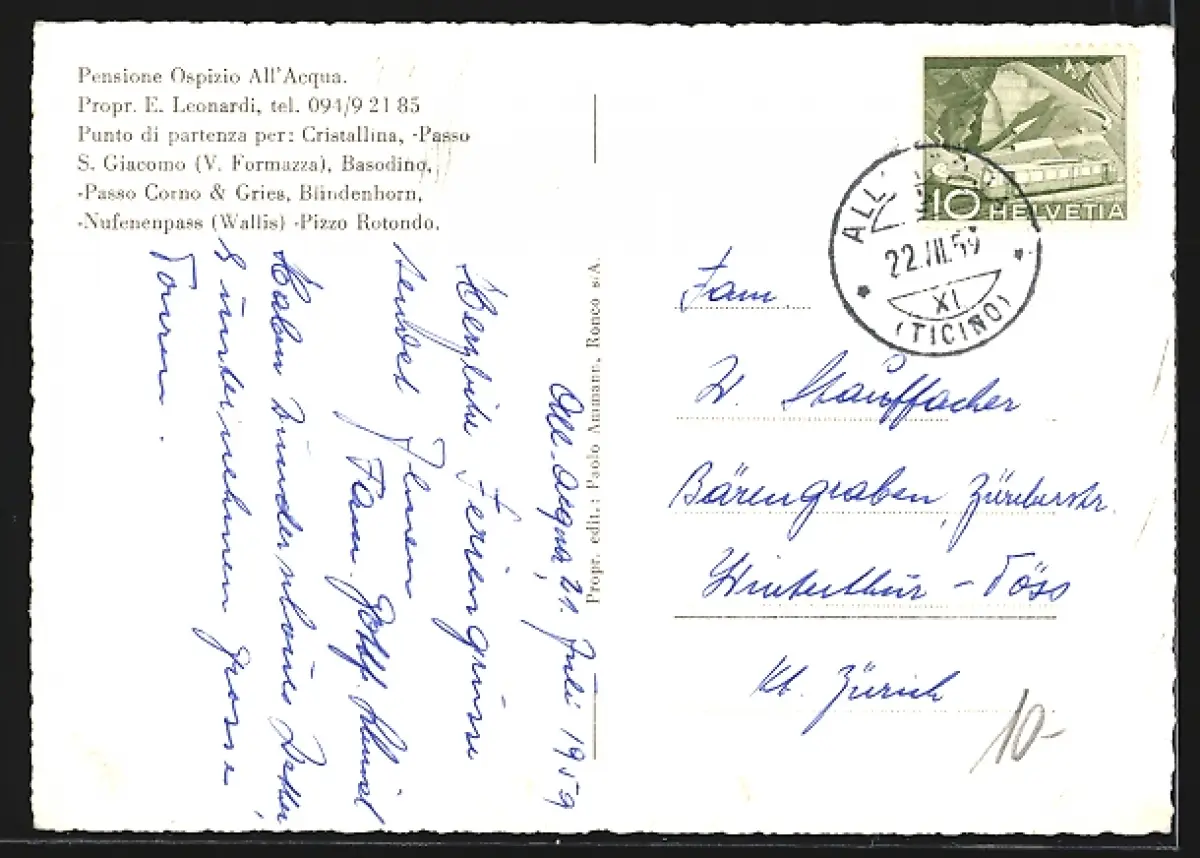 Pensione Ospizio All'Acqua.
Propr. E. Leonardi, tel. 094/9 21 85
Punto di partenza per: Cristallina, -Passo
S. Giacomo (V. Formazza), Basodino,
-Passo Corno & Gries, Blindenhorn,
-Nufenenpass (Wallis) -Pizzo Rotondo.
All-acqua, 21. Juli 1959
Herzliche Feriengrüsse
sendet Ihnen
Fam. Gottf. Schmid
Haben wunderschönes Wetter,
& unternehmen grosse
Touren.
Propr. edit.: Paolo Ammann, Ronco s/A.
10 HELVETIA
ALL'
22.VII.59
XI
(TICINO)
Fam.
W. Stauffacher
Bärengraben, Zürcherstr.
Winterthur - Töss
Kt. Zürich
10-